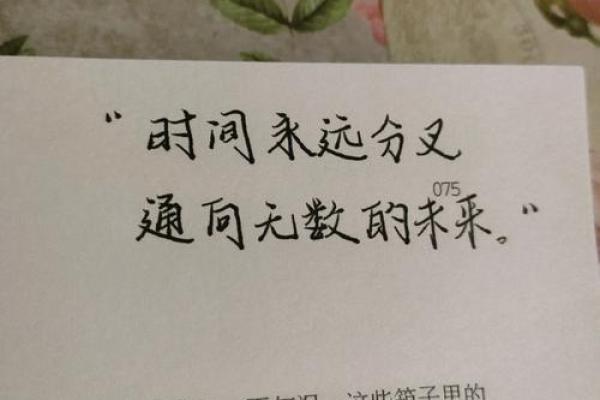 “时间永远分叉
075
通向无数的未来。”
这些箱子里的